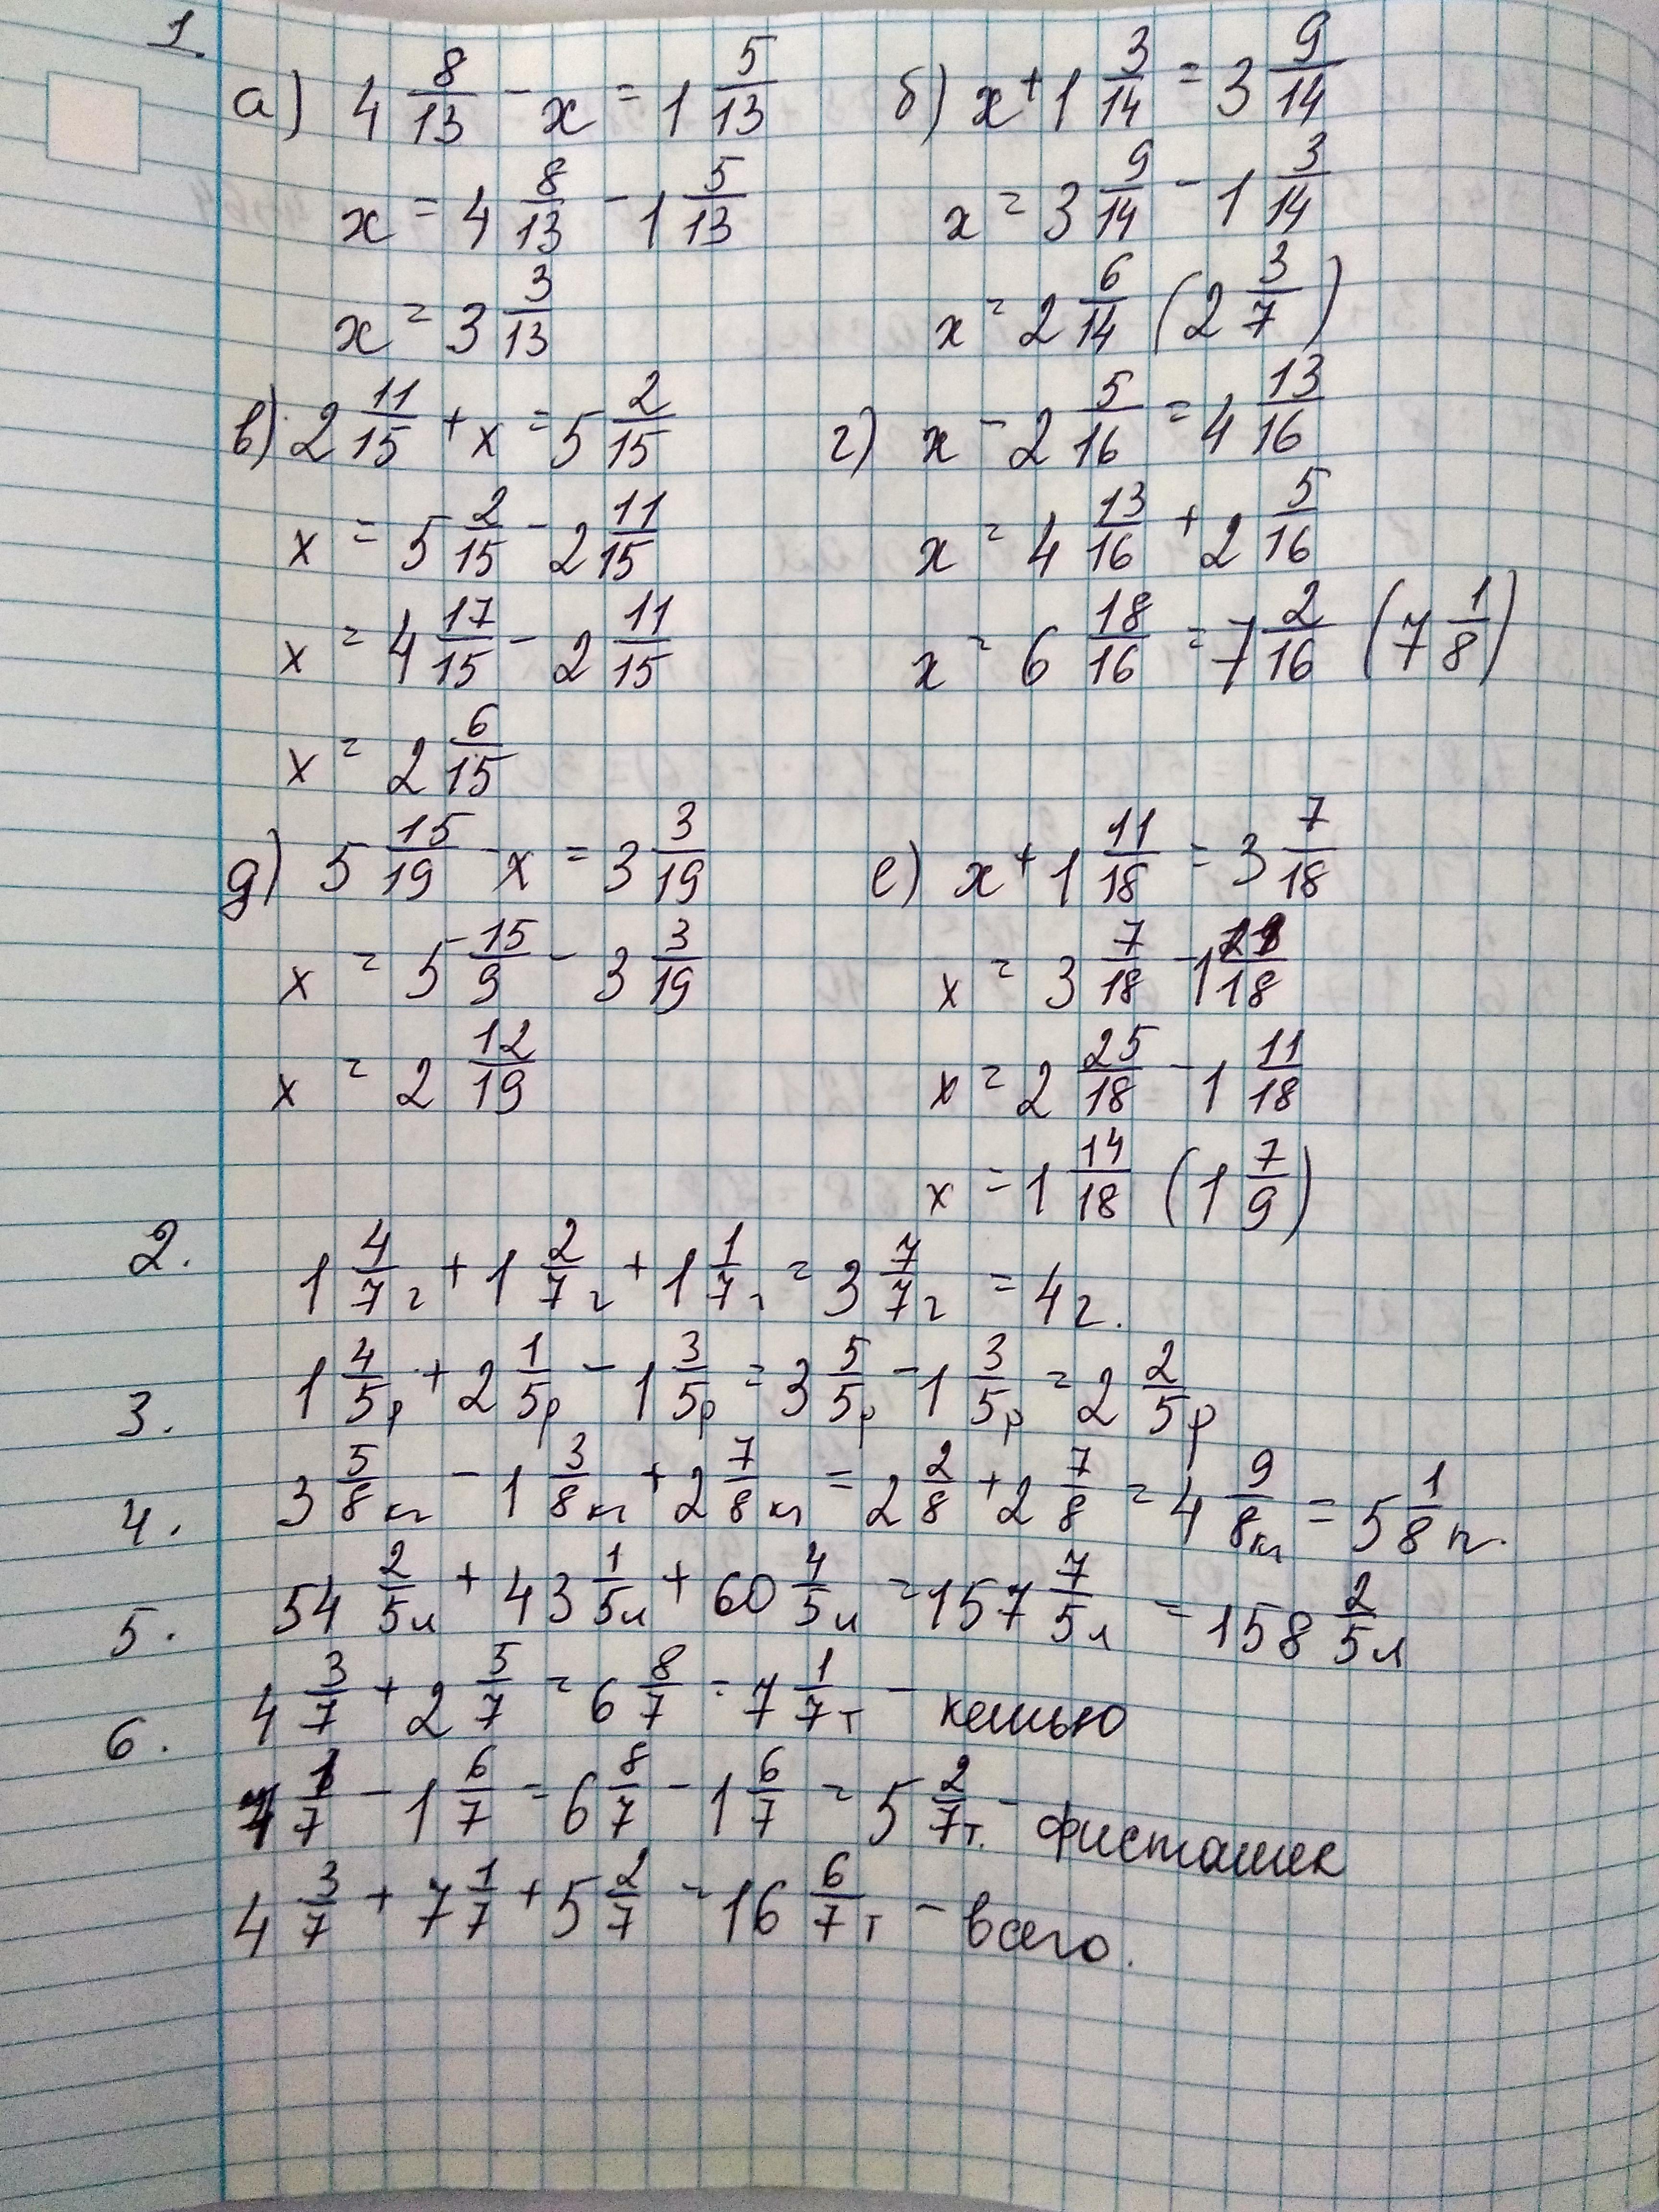 1.
а) 4 8/13 - x = 1 5/13
x = 4 8/13 - 1 5/13
x = 3 3/13
б) x + 1 3/14 = 3 9/14
x = 3 9/14 - 1 3/14
x = 2 6/14 (2 3/7)
в) 2 11/15 + x = 5 2/15
x = 5 2/15 - 2 11/15
x = 4 17/15 - 2 11/15
x = 2 6/15
г) x - 2 5/16 = 4 13/16
x = 4 13/16 + 2 5/16
x = 6 18/16 = 7 2/16 (7 1/8)
д) 5 15/19 - x = 3 3/19
x = 5 15/9 - 3 3/19
x = 2 12/19
е) x + 1 11/18 = 3 7/18
x = 3 7/18 - 1 11/18
x = 2 25/18 - 1 11/18
x = 1 14/18 (1 7/9)
2. 1 4/7 г + 1 2/7 г + 1 1/7 г = 3 7/7 г = 4 г.
3. 1 4/5 р + 2 1/5 р - 1 3/5 р = 3 5/5 р - 1 3/5 р = 2 2/5 р
4. 3 5/8 кг - 1 3/8 кг + 2 7/8 кг = 2 2/8 + 2 7/8 = 4 9/8 кг = 5 1/8 кг.
5. 54 2/5 л + 43 1/5 л + 60 4/5 л = 157 7/5 л = 158 2/5 л
6. 4 3/7 + 2 5/7 = 6 8/7 = 7 1/7 т - кешью
7 1/7 - 1 6/7 = 6 8/7 - 1 6/7 = 5 2/7 т. - фисташек
4 3/7 + 7 1/7 + 5 2/7 = 16 6/7 т - всего.